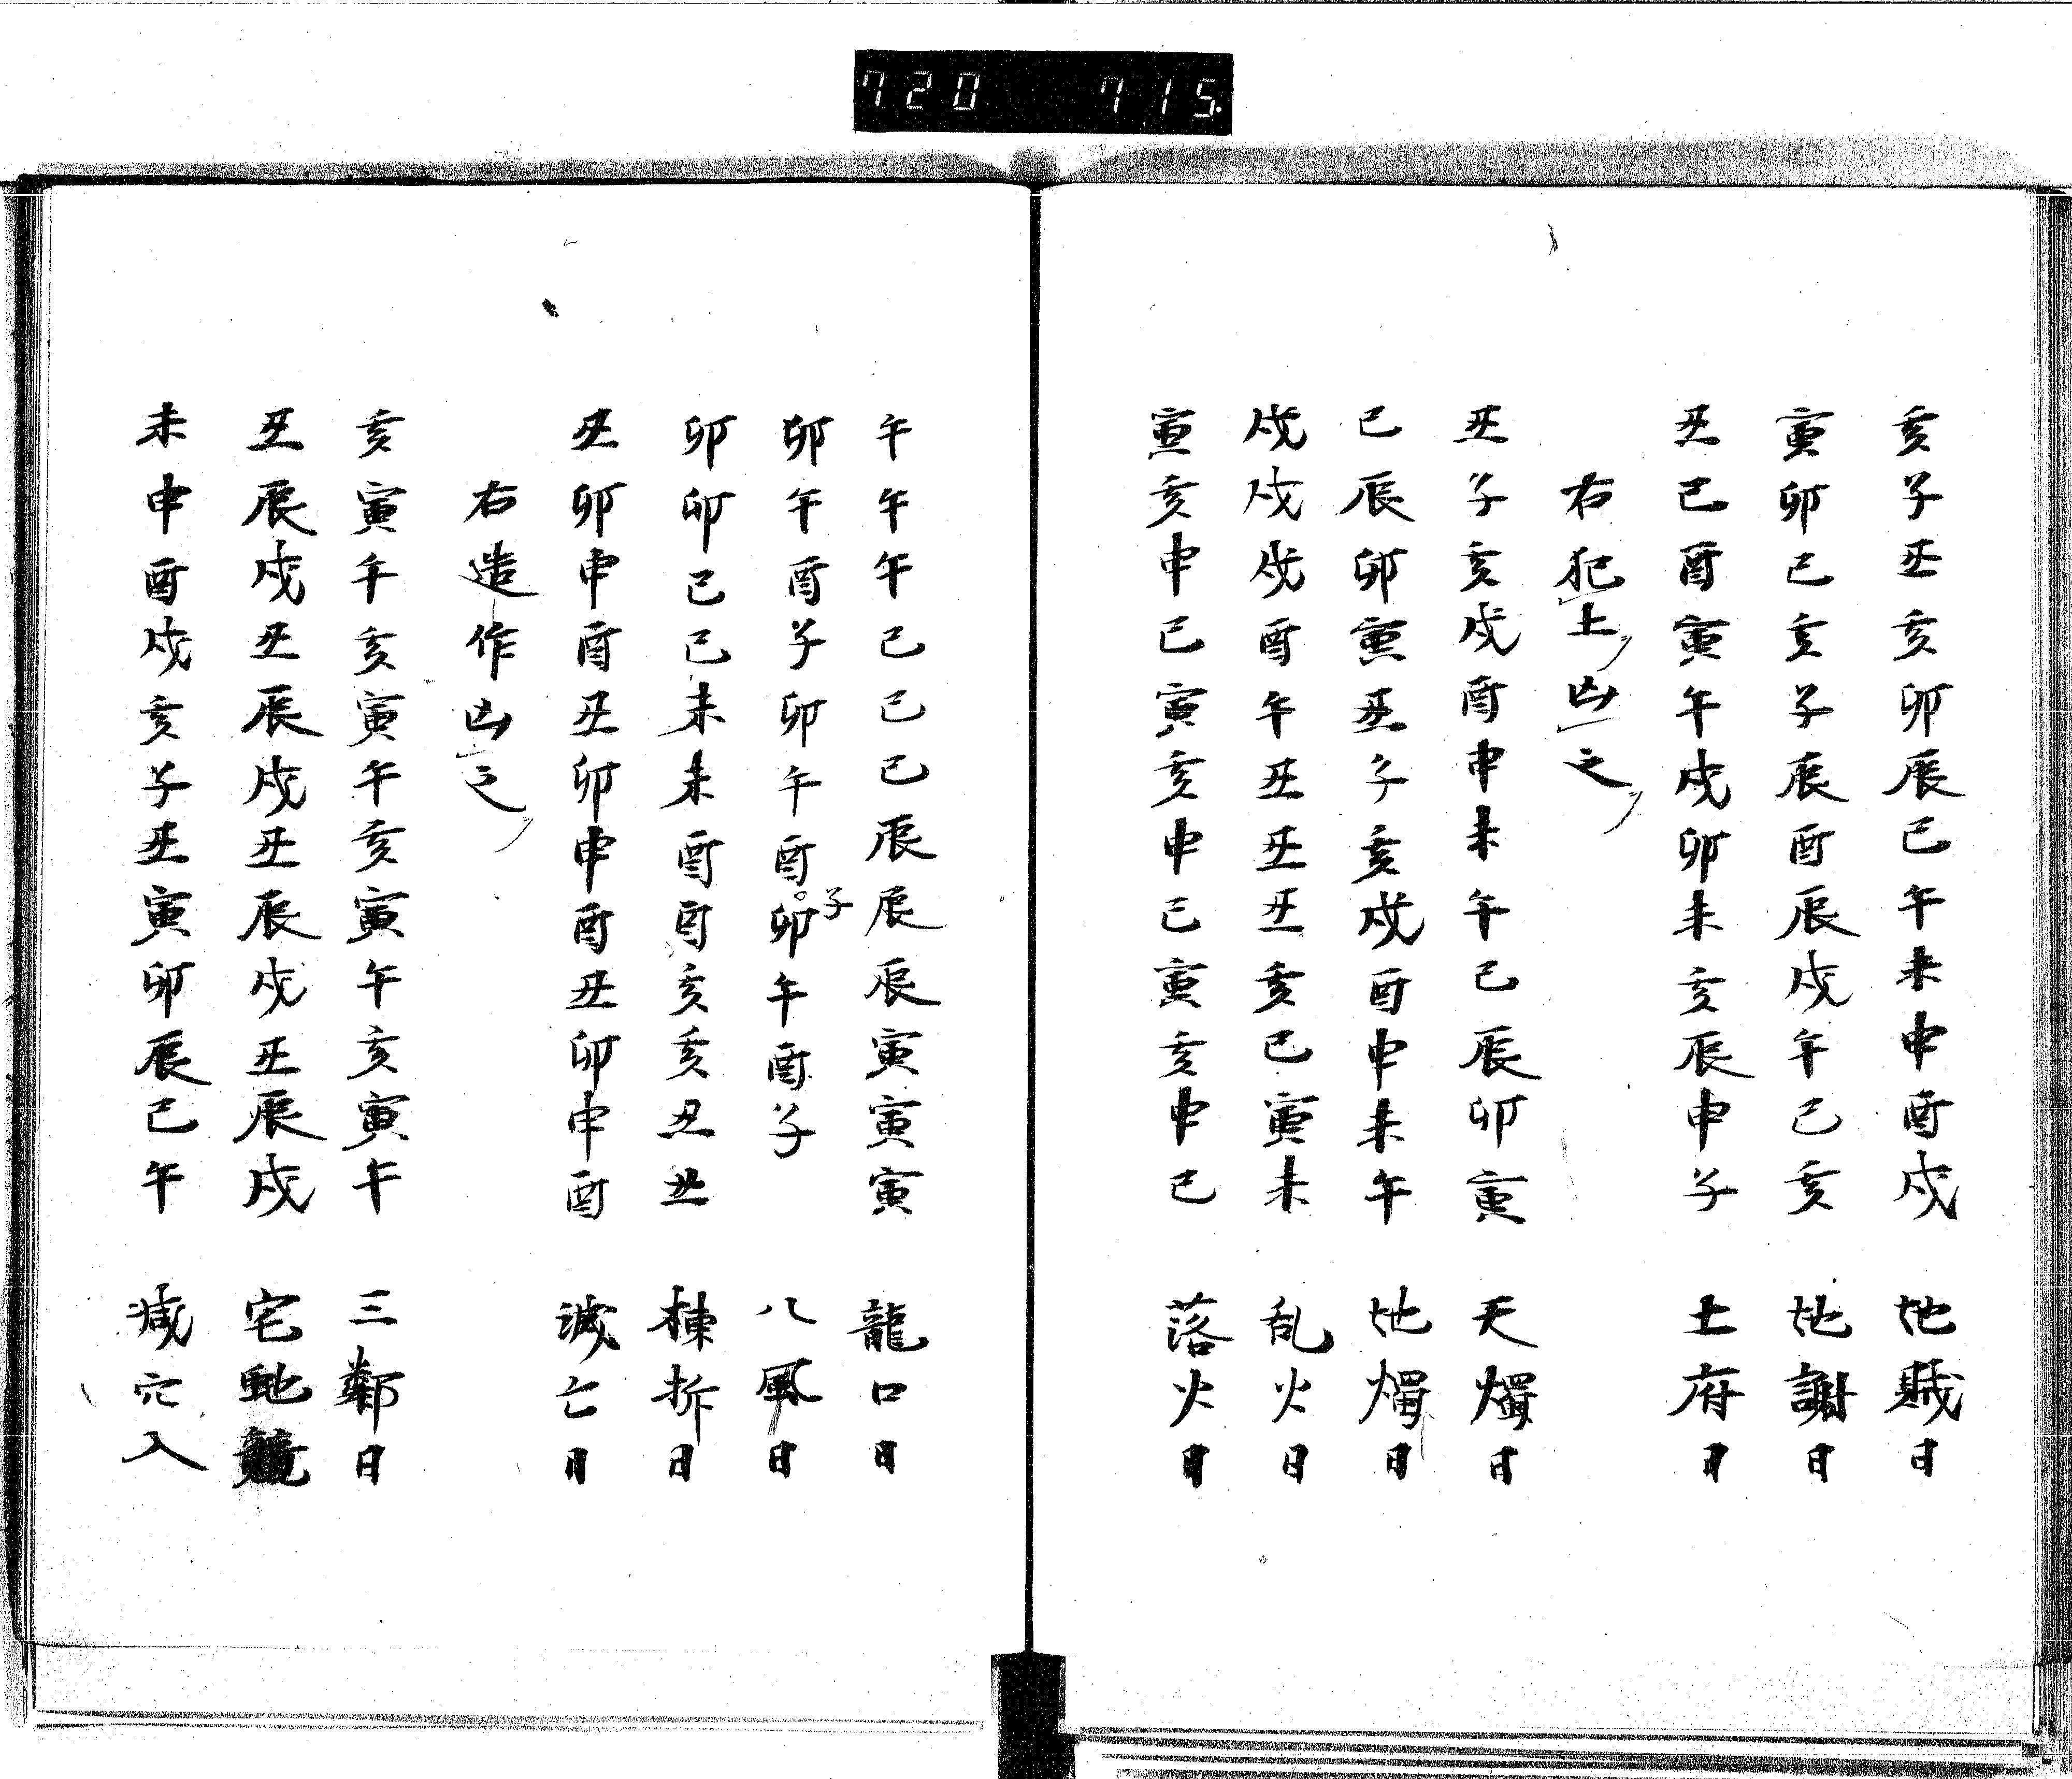 720 715.
亥子丑亥卯辰巳午未申酉戌 地賊日
寅卯巳亥子辰酉辰戌午巳亥 地謝日
丑巳酉寅午戌卯未亥辰申子 土府日
右犯土凶之
丑子亥戌酉申未午巳辰卯寅 天燭日
巳辰卯寅丑子亥戌酉申未午 地燭日
戌戌戌酉午丑丑丑亥巳寅未 乱火日
寅亥申巳寅亥申巳寅亥申巳 落火日
午午午巳巳巳辰辰辰寅寅寅 龍口日
卯午酉子卯午酉。卯午酉子 八風日
子
卯卯巳巳未未酉酉亥亥丑丑 棟折日
丑卯申酉丑卯申酉丑卯申酉 滅亡日
右造作凶之
亥寅午亥寅午亥寅午亥寅午 三鄰日
丑辰戌丑辰戌丑辰戌丑辰戌 宅地競
未申酉戌亥子丑寅卯辰巳午 減穴入